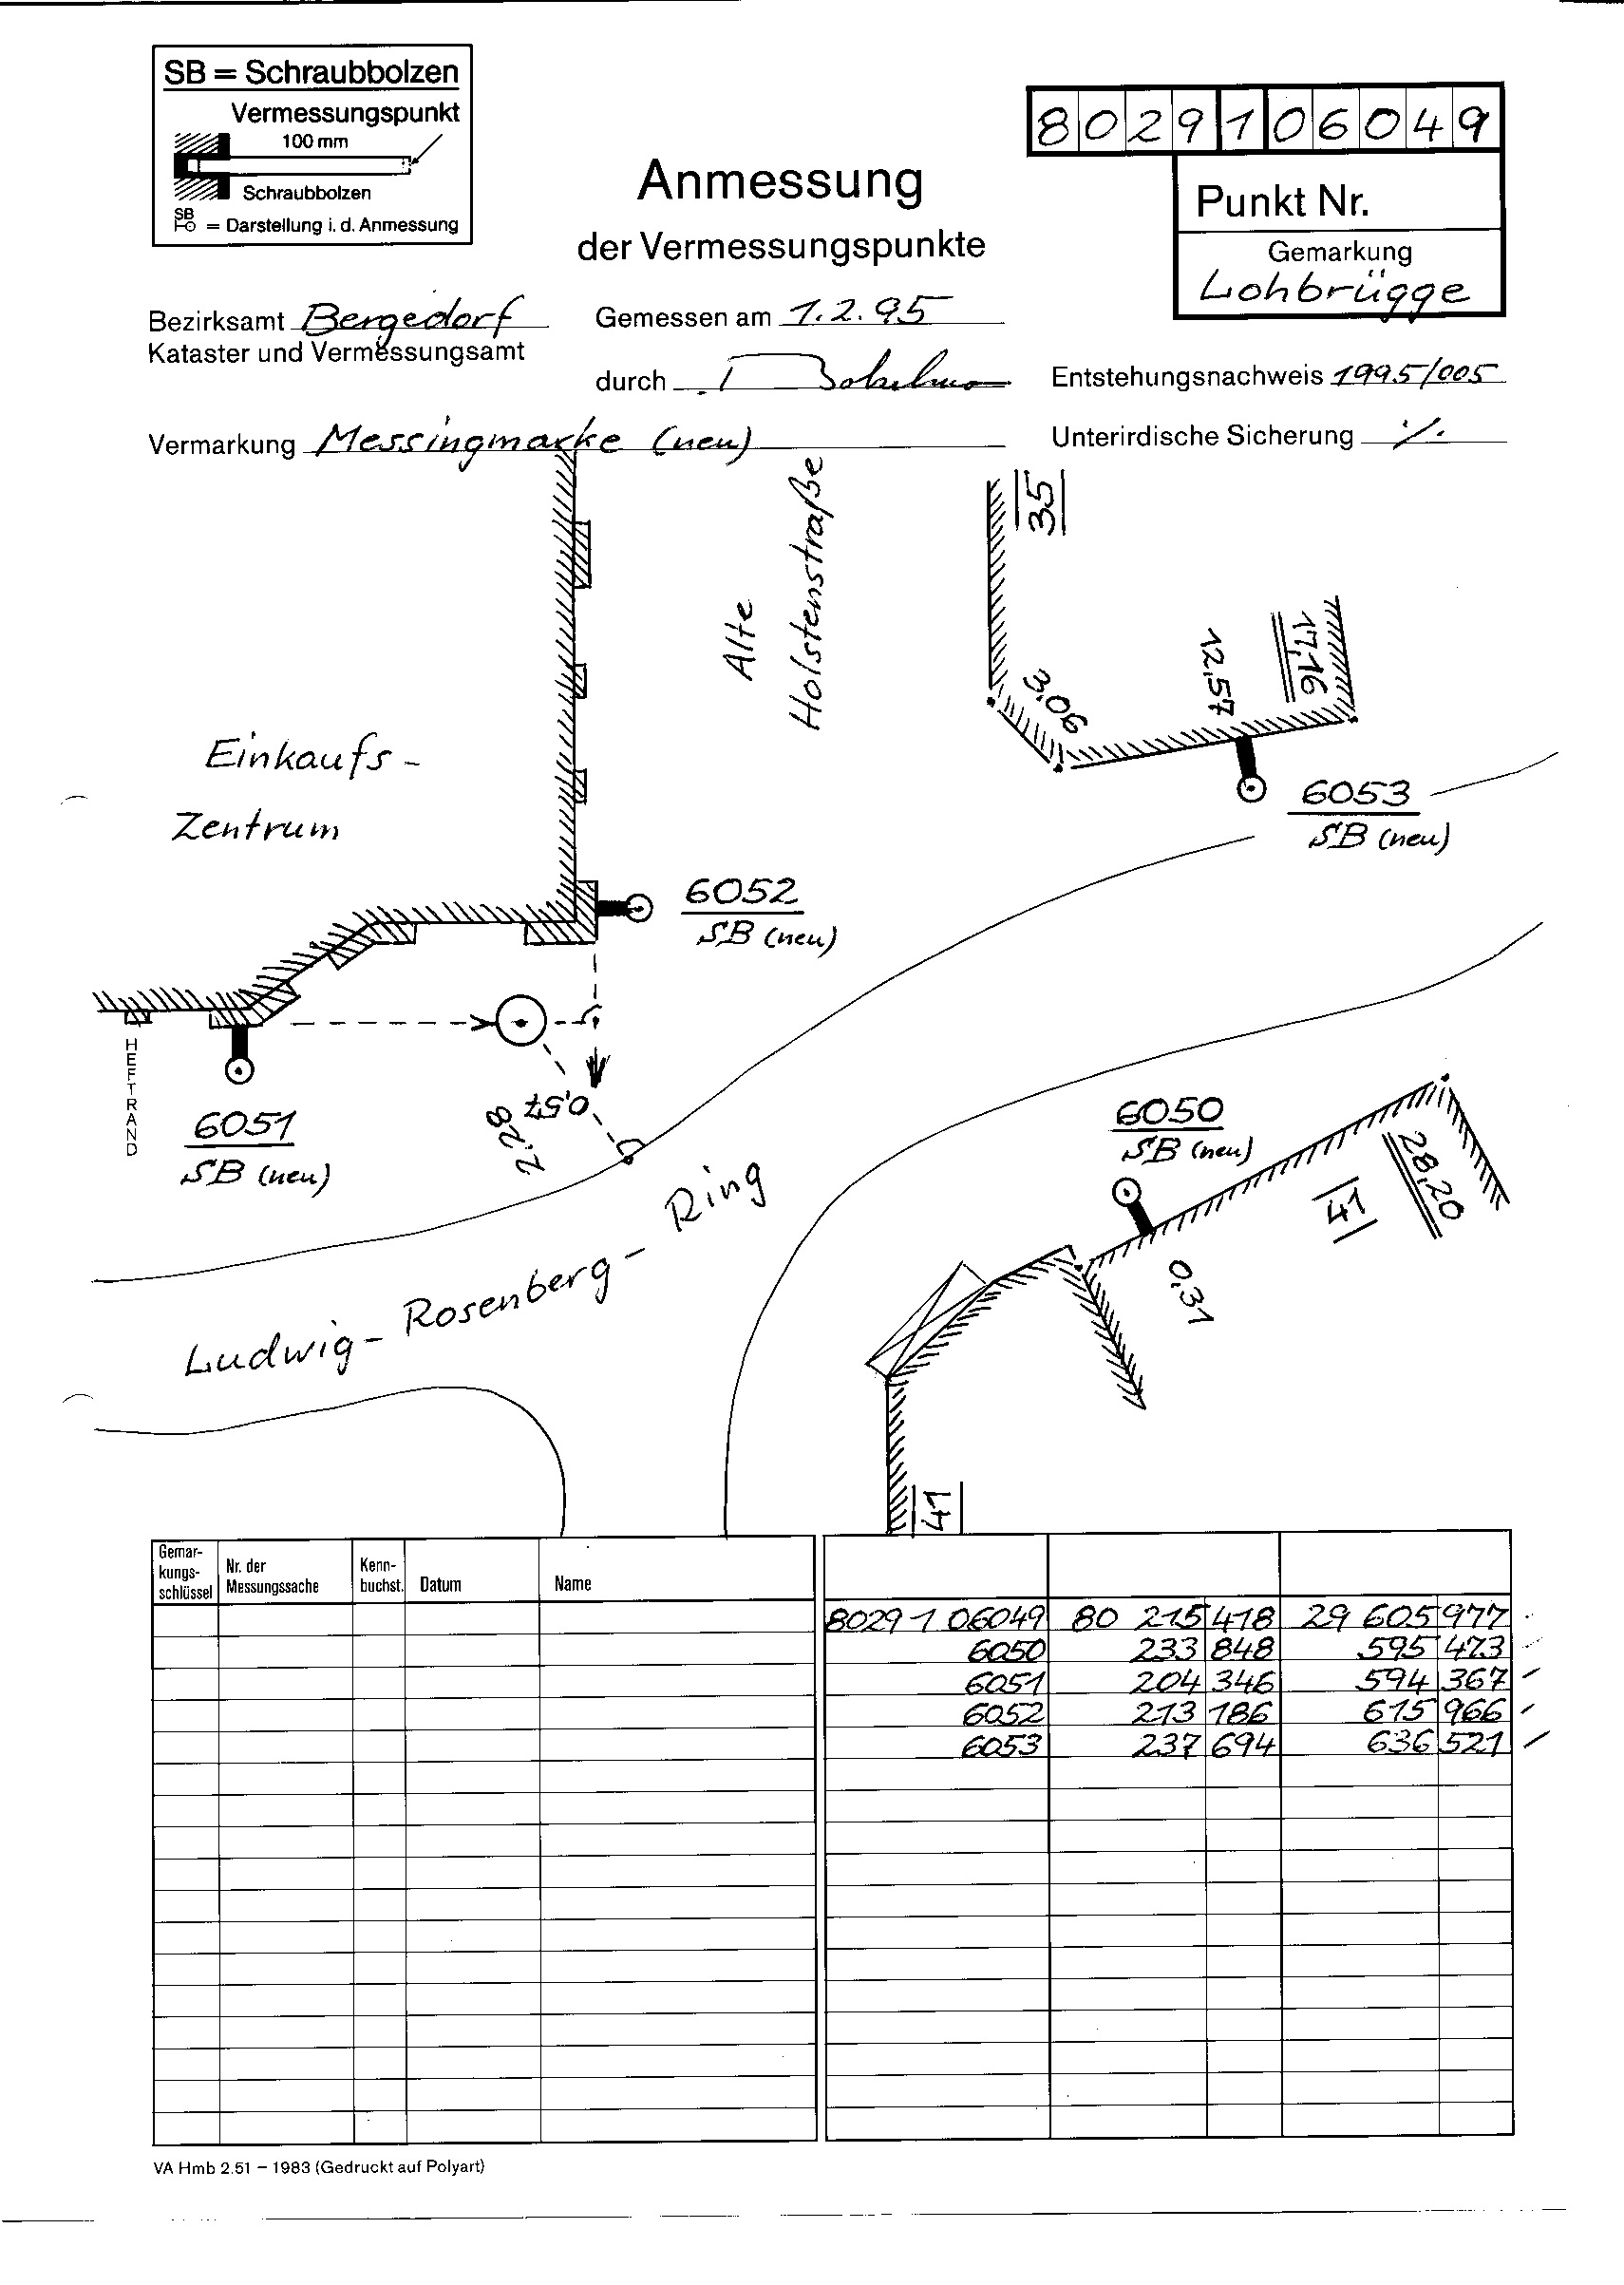 SB = Schraubbolzen
Vermessungspunkt
100 mm
Schraubbolzen
SB
= Darstellung i. d. Anmessung
8029106049
Anmessung
der Vermessungspunkte
Punkt Nr.
Gemarkung
Lohbrügge
Bezirksamt Bergedorf
Kataster und Vermessungsamt
Gemessen am 1.2.95
durch
Entstehungsnachweis 1995/005
Vermarkung Messingmarke (neu)
Unterirdische Sicherung ·/.
35
Alte
Holstenstraße
3,06
12,57
17,16
Einkaufs-
Zentrum
6053
SB (neu)
6052
SB (neu)
HEFTRAND
6051
SB (neu)
2,28
0,57
6050
SB (neu)
28,20
41
0,31
Ludwig-Rosenberg-Ring
41
Gemar-
kungs-
schlüssel
Nr. der
Messungssache
Kenn-
buchst.
Datum
Name
8029 1 06049 80 215 418 29 605 977
6050 233 848 595 473
6051 204 346 594 367
6052 213 186 615 966
6053 237 694 636 521
VA Hmb 2.51 – 1983 (Gedruckt auf Polyart)